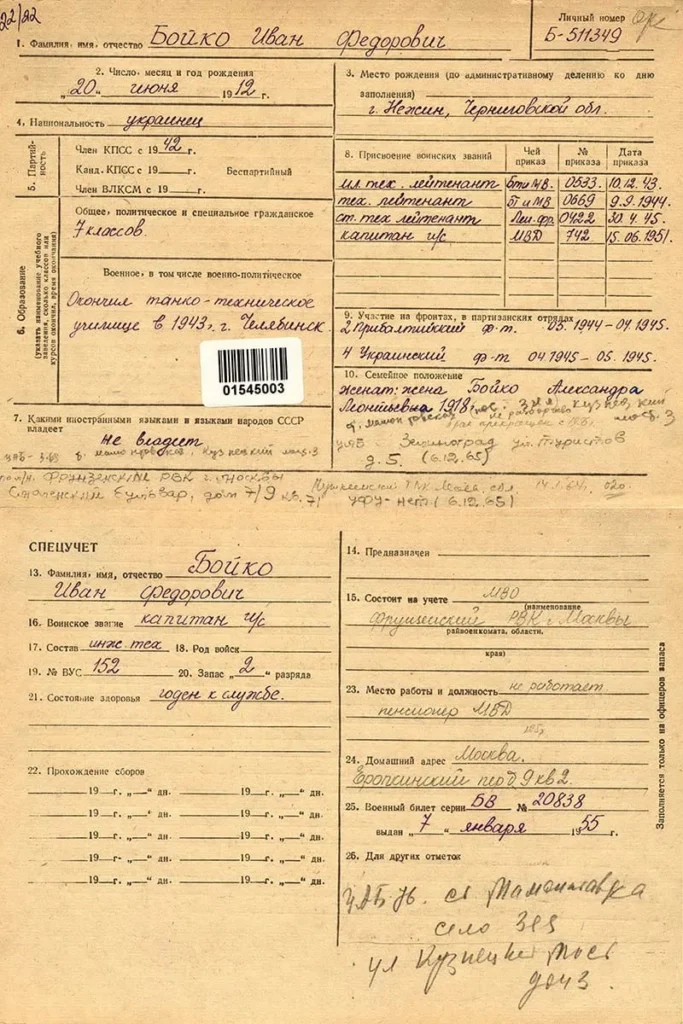 22/22
Личный номер
1. Фамилия, имя, отчество Бойко Иван Федорович
Б-511349
2. Число, месяц и год рождения
„20" июня 1912 г.
3. Место рождения (по административному делению ко дню
заполнения)
г. Нежин, Черниговской обл.
4. Национальность украинец
5. Партийность
Член КПСС с 1942 г.
Канд. КПСС с 19 г. Беспартийный
Член ВЛКСМ с 19 г.
6. Образование
(указать наименование учебного заведения, сколько классов или курсов окончил, время окончания)
Общее, политическое и специальное гражданское
7 классов.
Военное, в том числе военно-политическое
Окончил танко-техническое
училище в 1943 г. г. Челябинск
01545003
7. Какими иностранными языками и языками народов СССР
владеет
не владеет
8. Присвоение воинских званий Чей приказ № приказа Дата приказа
мл. тех. лейтенант БТ и МВ. 0533. 10.12.43.
тех. лейтенант БТ и МВ 0669 9.9.1944.
ст. тех лейтенант Лен. фр. 0422 30.4.45.
капитан и/с МВД 742 15.06.1951.
9. Участие на фронтах, в партизанских отрядах
2 Прибалтийский ф-т. 05.1944-04.1945.
4 Украинский ф-т 04.1945-05.1945.
10. Семейное положение
женат: жена Бойко Александра
Леонтьевна 1918
Зеленоград ул. Туристов
д. 5. (6.12.65)
Фрунзенский РВК г. Москвы
бульвар, дом 7/9 кв. 71
(6.12.65)
СПЕЦУЧЕТ
13. Фамилия, имя, отчество Бойко
Иван Федорович
16. Воинское звание капитан и/с
17. Состав инж. тех 18. Род войск
19. № ВУС 152 20. Запас „2" разряда
21. Состояние здоровья годен к службе.
22. Прохождение сборов
19 г. „ " дн. 19 г. „ " дн.
19 г. „ " дн. 19 г. „ " дн.
19 г. „ " дн. 19 г. „ " дн.
19 г. „ " дн. 19 г. „ " дн.
19 г. „ " дн. 19 г. „ " дн.
14. Предназначен
15. Состоит на учете МВО
(наименование
Фрунзенский РВК г. Москвы
райвоенкомата, области,
края)
23. Место работы и должность не работает
пенсионер МВД
24. Домашний адрес Москва.
Еропкинский пер д. 9 кв 2.
25. Военный билет серии БВ № 20838
выдан „7" января 1955 г.
26. Для других отметок
ст Мамонтовка
село
ул Кузнецкий мост
дом 3
Заполняется только на офицеров запаса